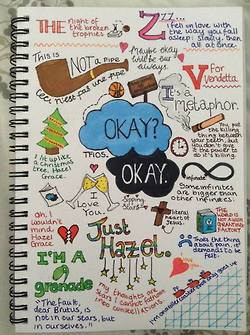 THE night of the broken trophies
Zzz...
I fell in love with the way you fall asleep: slowly, then all at once.
This is NOT a pipe
ceci n'est pas une pipe
Maybe okay will be our always.
V for Vendetta
It's a metaphor
You put the killing thing between your teeth, but you don't give it the power to do it's killing.
OKAY?
TFIOS.
OKAY.
I lit up like a christmas tree, Hazel Grace.
infinite
Some infinites are bigger than other infinites.
I Love You.
sipping stars
literal heart of Jesus
THE WORLD IS NOT A WISH GRANTING FACTORY
Oh, I wouldn't mind, Hazel Grace
Just Hazel.
That's the thing about pain, it demands to be felt.
I'M A grenade
my thoughts are stars I cannot fathom into constellations.
"The fault, dear Brutus, is not in our stars, but in ourselves."
I'm on a roller coaster that only goes up